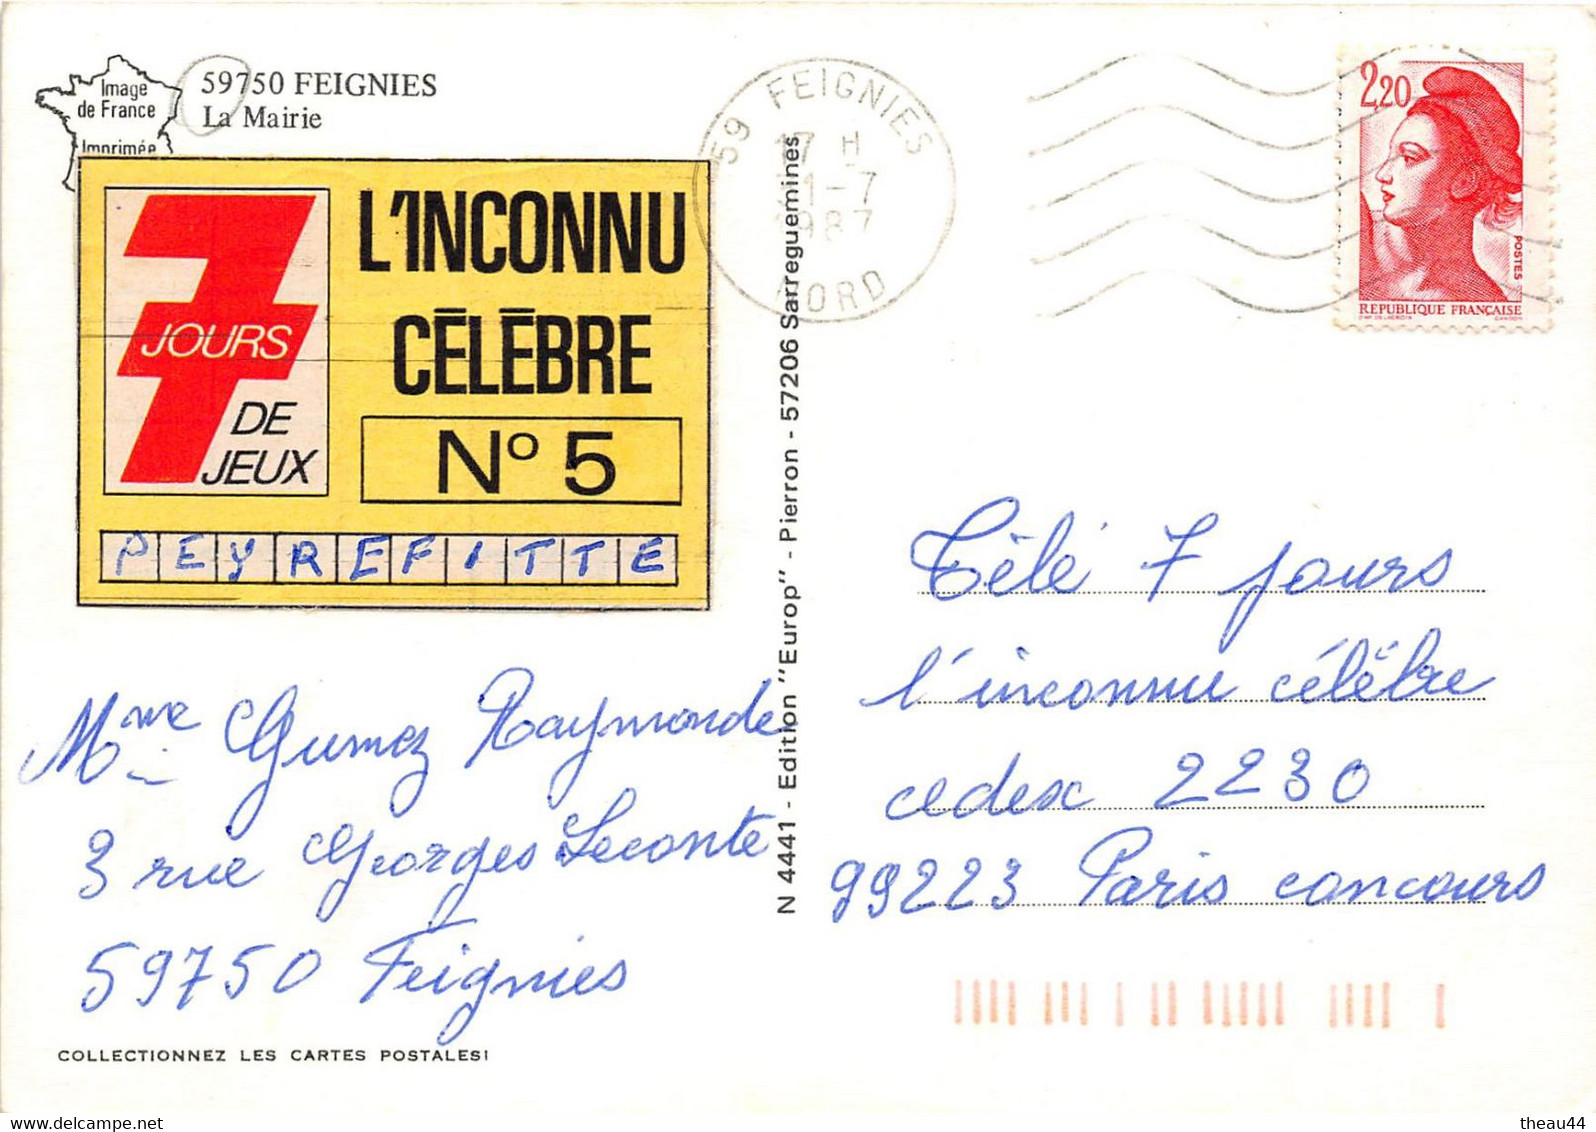 Image
de France
Imprimée
59750 FEIGNIES
La Mairie
7
JOURS
DE
JEUX
L'INCONNU
CÉLÈBRE
N° 5
PEYREFITTE
Mme Gumez Raymonde
3 rue Georges Leconte
59750 Feignies
COLLECTIONNEZ LES CARTES POSTALES!
N 4441 - Edition "Europ" - Pierron - 57206 Sarreguemines
59 FEIGNIES
17 H
1-7
1987
NORD
2,20
POSTES
REPUBLIQUE FRANÇAISE
Télé 7 jours
l'inconnu célèbre
cedex 2230
99223 Paris concours
theau44